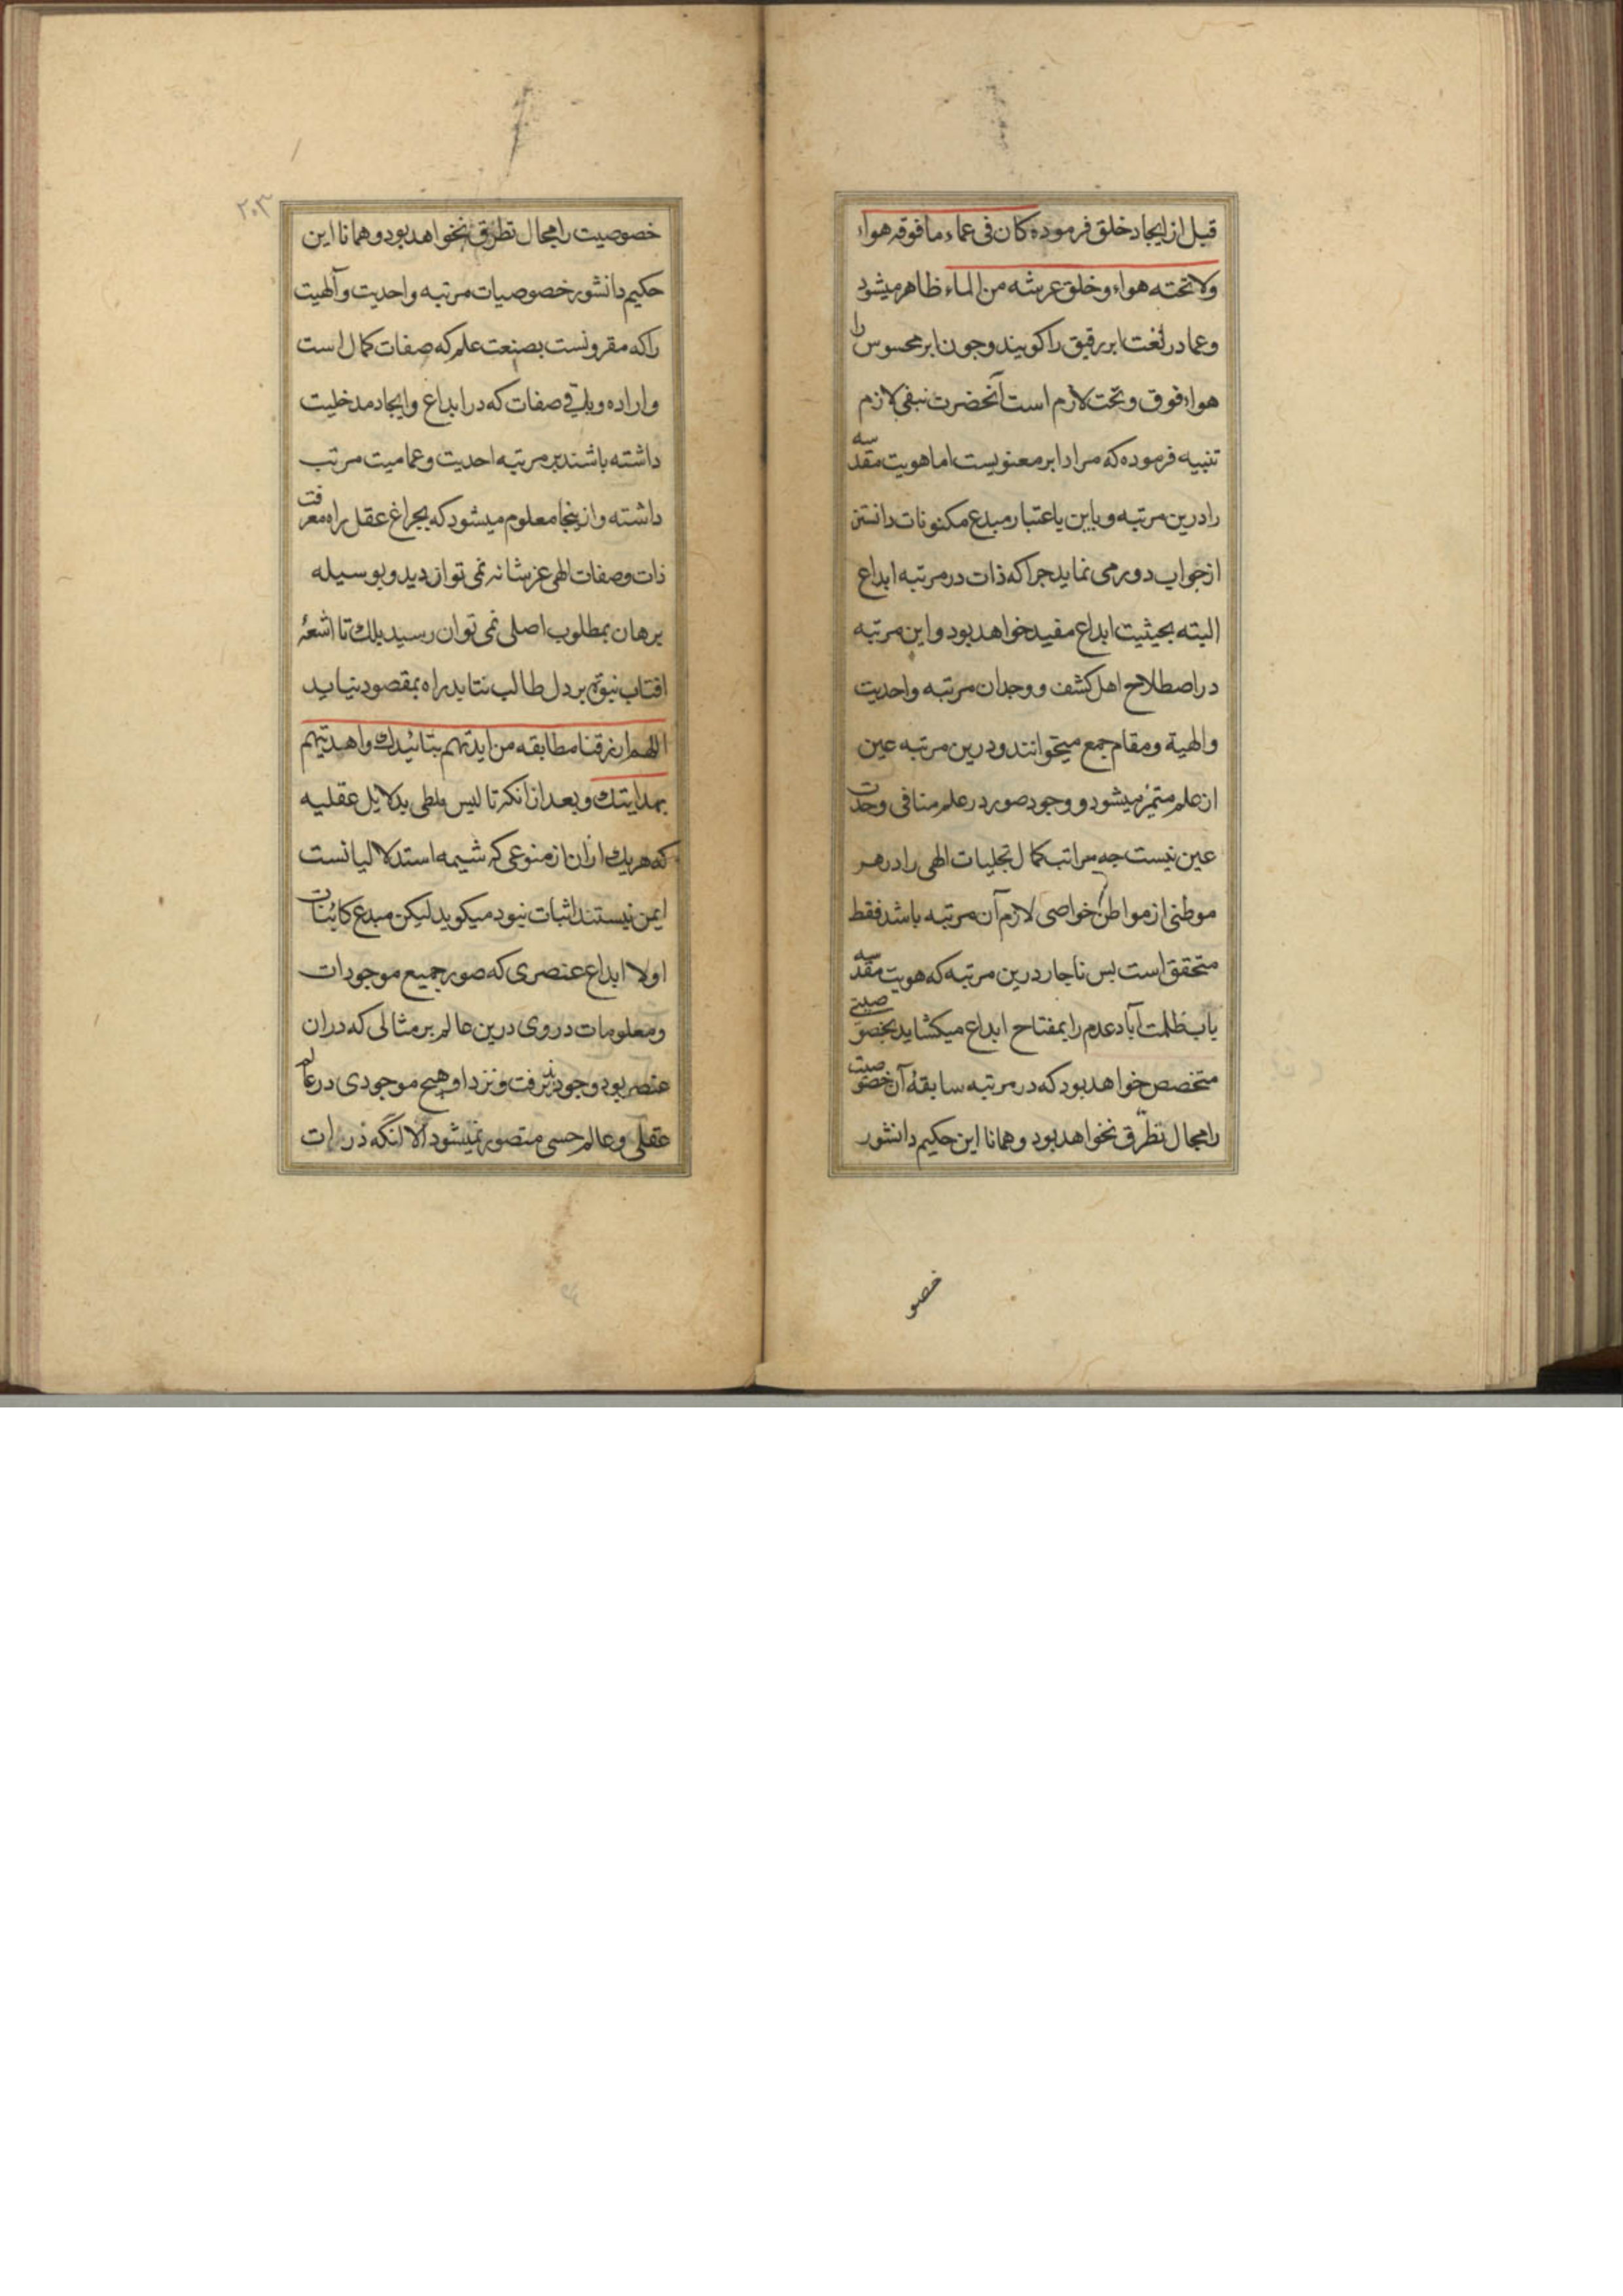 قبل از ایجاد خلق فرموده کان فی عماء ما فوقه هواء
ولا تحته هواء و خلق عرشه من الماء ظاهر میشود
و عما در لغت ابر رقیق را کویند و جون ابر محسوس را
هواء فوق و تحت لازم است آنحضرت بنفی لازم
تنبیه فرموده که مراد ابر معنویست اما هویت مقدسه
را درین مرتبه و باین یاعتبار مبدع مکنونات دانستن
از جواب دور می نماید جرا که ذات در مرتبه ابداع
البته بحیثیت ابداع مقید خواهد بود و این مرتبه
در اصطلاح اهل کشف و وجدان مرتبه واحدیت
والهیة و مقام جمع میخوانند و درین مرتبه عین
از علم متمیز میشود و وجود صور در علم منافی وحدت
عین نیست جه مراتب کمال تجلیات الهی را در هر
موطنی از مواطن خواصی لازم آن مرتبه باشد فقط
متحقق است بس ناجار درین مرتبه که هویت مقدسه
باب ظلمت آباد عدم را بمفتاح ابداع میکشاید بخصوصیتی
متخصص خواهد بود که در مرتبه سابقهٔ آن خصوصیت
را مجال تطرّق نخواهد بود و همانا این حکیم دانشور
خصو
۲۰۳
خصوصیت را مجال تطرّق نخواهد بود و همانا این
حکیم دانشور خصوصیات مرتبه واحدیت و آلهیت
را که مقرونست بصنعت علم که صفات کمال است
و اراده و باقی صفات که در ابداع و ایجاد مدخلیت
داشته باشند بر مرتبه احدیت و عمامیت مرتب
داشته و از ینجا معلوم میشود که بجراغ عقل راه معرفت
ذات و صفات الهی عز شانه نمی توان دید و بوسیله
برهان بمطلوب اصلی نمی توان رسید بلک تا اشعهٔ
افتاب نبوّت بر دل طالب نتابد راه بمقصود نیابد
اللهم ارزقنا مطابقه من ایدتهم بتائیدك واهدیتهم
بهدایتك و بعد از انکه تا لیس ملطی بدلایل عقلیه
که هریك از ان از منوعی که شیمه استدلالیانست
ایمن نیستند اثبات نبود میکوید لیکن مبدع کائنات
اولا ابداع عنصری که صور جمیع موجودات
و معلومات در وی درین عالم بر مثالی که در ان
عنصر بود وجود پذیرفت و نزد او هیچ موجودی در عالم
عقلی و عالم حسی متصور نمیشود الا انگه ذرات